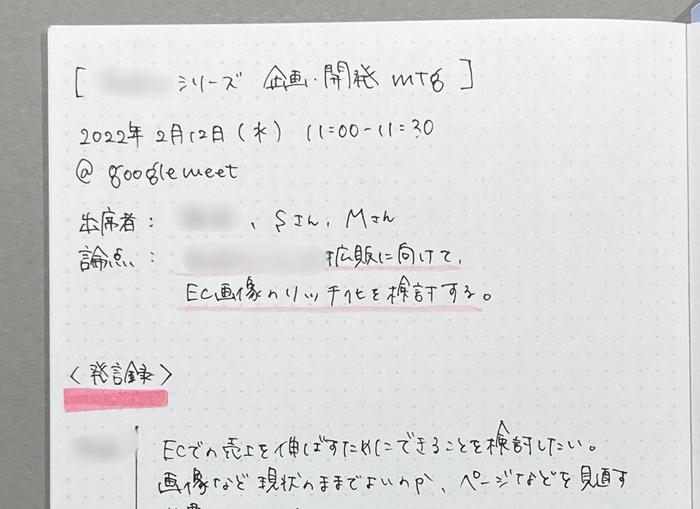 [ シリーズ 企画・開発 mtg ]
2022年 2月12日(水) 11:00-11:30
@ googlemeet
出席者: 、Sさん、Mさん
論点: 拡販に向けて、
EC画像のリッチ化を検討する。
<発言録>
ECでの売上を伸ばすためにできることを検討したい。
画像など現状のままでよいのか、ページなどを見直す